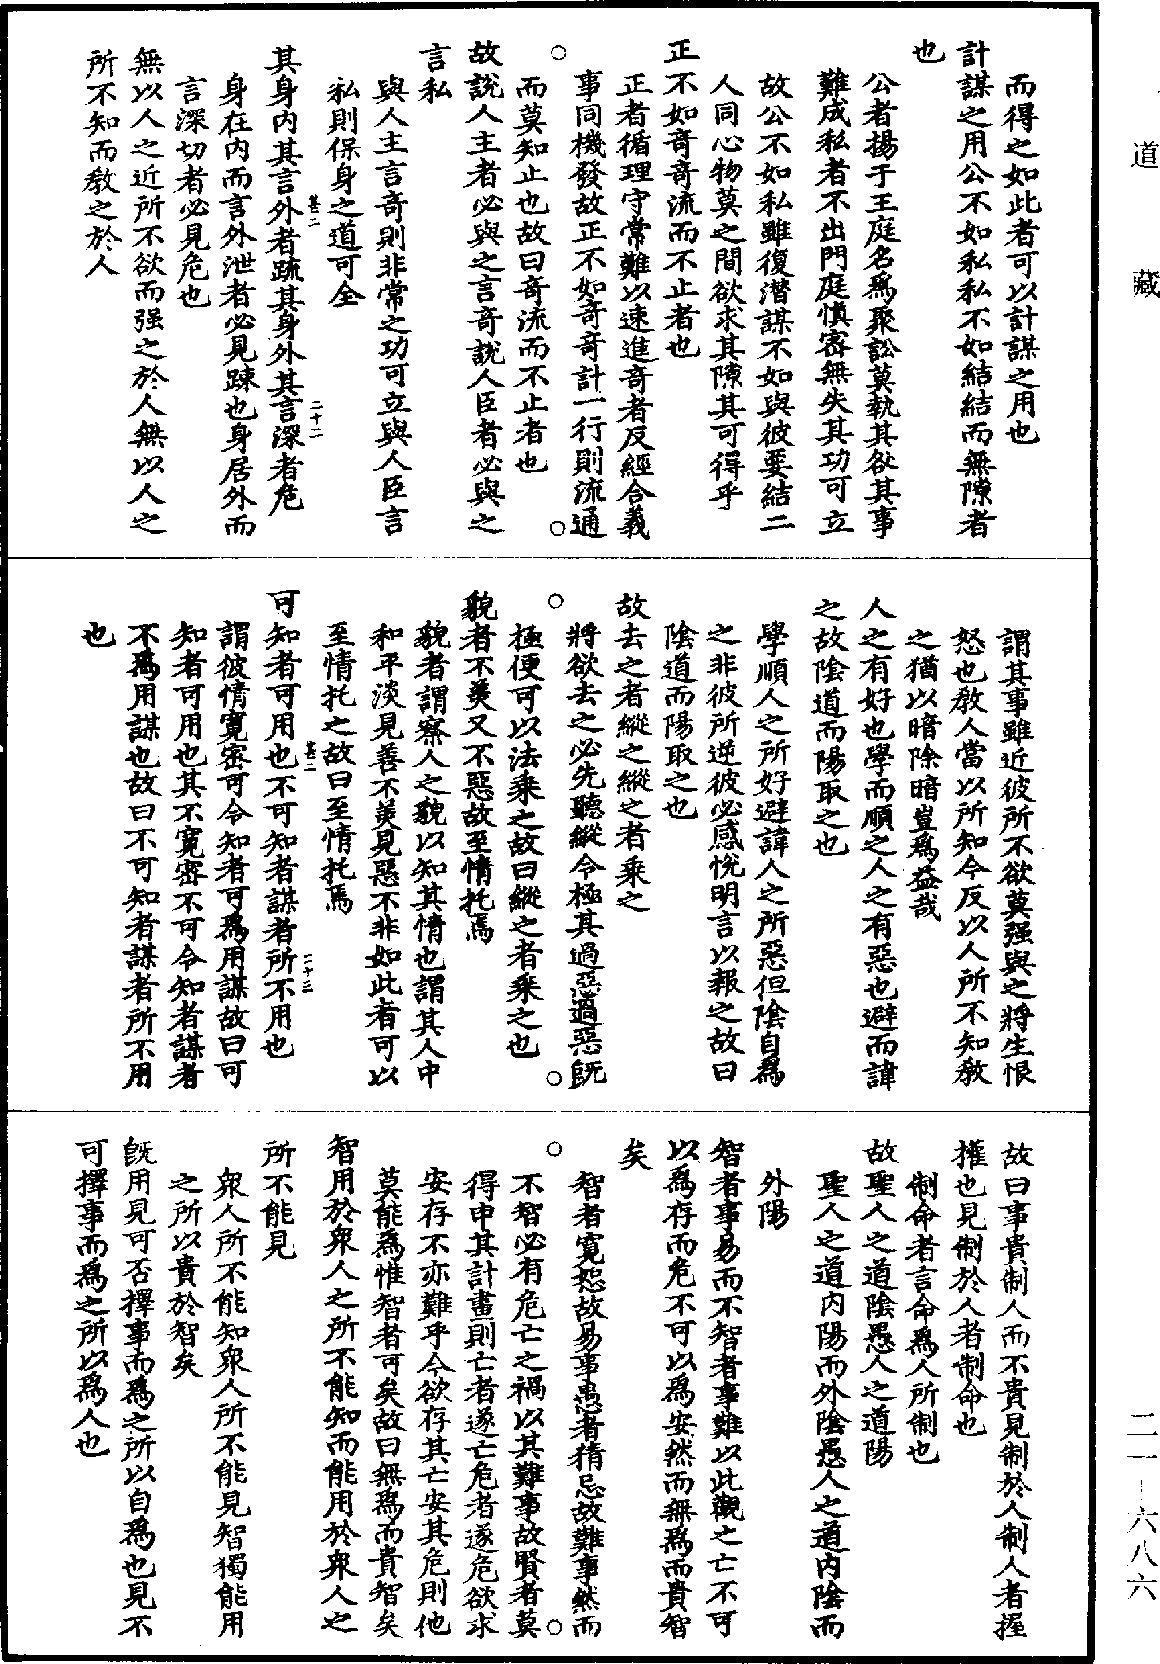 道藏
而得之如此者可以計謀之用也
計謀之用公不如私私不如結結而無隙者
也
公者揚于王庭名爲聚訟莫執其咎其事
難成私者不出門庭慎密無失其功可立
故公不如私雖復潛謀不如與彼要結二
人同心物莫之間欲求其隙其可得乎
正不如奇奇流而不止者也
正者循理守常難以速進奇者反經合義
事同機發故正不如奇奇計一行則流通
而莫知止也故曰奇流而不止者也
故說人主者必與之言奇說人臣者必與之
言私
與人主言奇則非常之功可立與人臣言
私則保身之道可全
其身内其言外者疏其身外其言深者危
卷二
二十二
身在内而言外泄者必見踈也身居外而
言深切者必見危也
無以人之近所不欲而强之於人無以人之
所不知而教之於人
謂其事雖近彼所不欲莫强與之將生恨
怒也教人當以所知今反以人所不知教
之猶以暗除暗豈爲益哉
人之有好也學而順之人之有惡也避而諱
之故陰道而陽取之也
學順人之所好避諱人之所惡但陰自爲
之非彼所逆彼必感悅明言以報之故曰
陰道而陽取之也
故去之者縱之縱之者乘之
將欲去之必先聽縱令極其過惡過惡既
極便可以法乘之故曰縱之者乘之也
貌者不美又不惡故至情托焉
貌者謂察人之貌以知其情也謂其人中
和平淡見善不美見惡不非如此者可以
至情托之故曰至情托焉
可知者可用也不可知者謀者所不用也
卷二
二十三
謂彼情寬密可令知者可爲用謀故曰可
知者可用也其不寬密不可令知者謀者
不爲用謀也故曰不可知者謀者所不用
也
故曰事貴制人而不貴見制於人制人者握
權也見制於人者制命也
制命者言命爲人所制也
故聖人之道陰愚人之道陽
聖人之道内陽而外陰愚人之道内陰而
外陽
智者事易而不智者事難以此觀之亡不可
以爲存而危不可以爲安然而無爲而貴智
矣
智者寬恕故易事愚者猜忌故難事然而
不智必有危亡之禍以其難事故賢者莫
得申其計畫則亡者遂亡危者遂危欲求
安存不亦難乎今欲存其亡安其危則他
莫能爲惟智者可矣故曰無爲而貴智矣
智用於衆人之所不能知而能用於衆人之
所不能見
衆人所不能知衆人所不能見智獨能用
之所以貴於智矣
既用見可否擇事而爲之所以自爲也見不
可擇事而爲之所以爲人也
二一—六八六